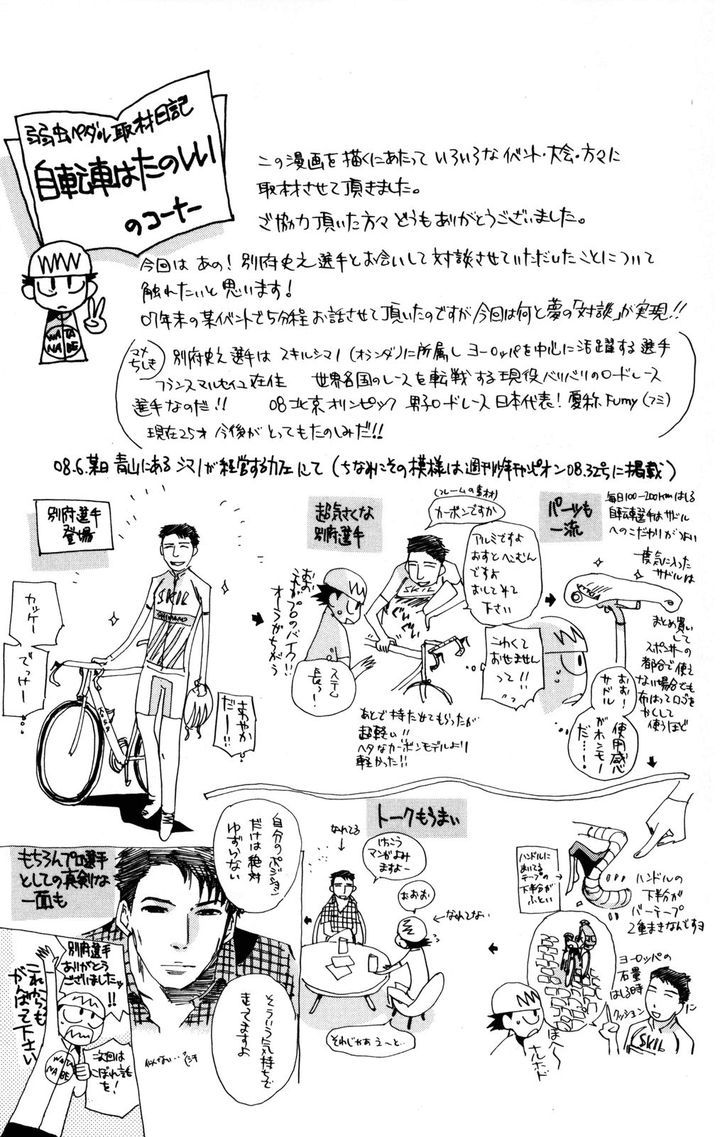 弱虫ペダル取材日記
自転車はたのしい
のコーナー
この漫画を描くにあたって いろいろなイベント・大会・方々に
取材させて頂きました。
ご協力頂いた方々 どうもありがとうございました。
今回は あの!別府史之選手とお会いして対談させていただいたことについて
触れたいと思います!
07年末の某イベントで5分程お話させて頂いたのですが今回は何と夢の「対談」が実現!!
マメ
ちしき
別府史之選手は スキルシマノ(オランダ)に所属し ヨーロッパを中心に活躍する選手
フランスマルセイユ在住 世界各国のレースを転戦する現役バリバリのロードレース
選手なのだ!! 08北京オリンピック 男子ロードレース日本代表!愛称 Fumy(フミ)
現在25才 今後がとってもたのしみだ!!
08.6.某日 青山にある シマノが経営するカフェにて(ちなみにその模様は週刊少年チャンピオン08.32号に掲載)
別府選手
登場
カッケー
でっけー
SKIL
SHIMANO
さわやか
だー!!
超気さくな
別府選手
(フレームの素材)
カーボンですか
アルミですよ
おすとへこむん
ですよ
おしてみて
下さい
SKIL
おお
これがプロのバイク!!
オーラがちがう
ステム
長っ!
こわくて
おせません
って!!
あとで持たせてもらったが
超軽い!!
ヘタなカーボンモデルより
軽かった!!
パーツも
一流
毎日100〜200kmはしる
自転車選手はサドル
へのこだわりがつよい
一度気に入った
サドルは
まとめ買い
して
スポンサーの
都合で使え
ない場合でも
布はってロゴを
かくして
使うほど
おお!
サドル
使用感
がホンモノ
だ…!
ハンドルに
まいてる
テープの
下半分が
ぶっとい
ハンドルの
下半分が
バーテープ
2重まきなんですヨ
ヨーロッパの
石畳
はしる時
クッション
に
SKIL
は〜
ナルホド
トークもうまい
なれてる
けっこう
マンガよみ
ますよー
おおお
なれてない
それじゃあ え〜と…
もちろんプロ選手
としての真剣な
一面も
自分のポジション
だけは絶対
ゆずらない
そういう気持ちで
走ってますよ
にてない…
別府選手
ありがとう
ございましたッ
!!
これからも
がんばって下さい
次回は
こぼれ話
を!
WATA
NABE